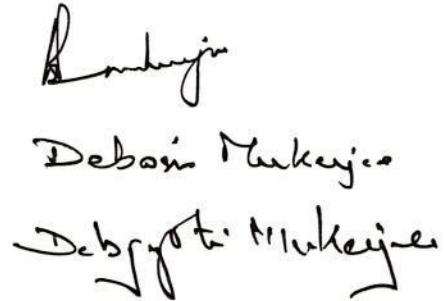 Debasis Mukerjee
Debjyoti Mukerjee